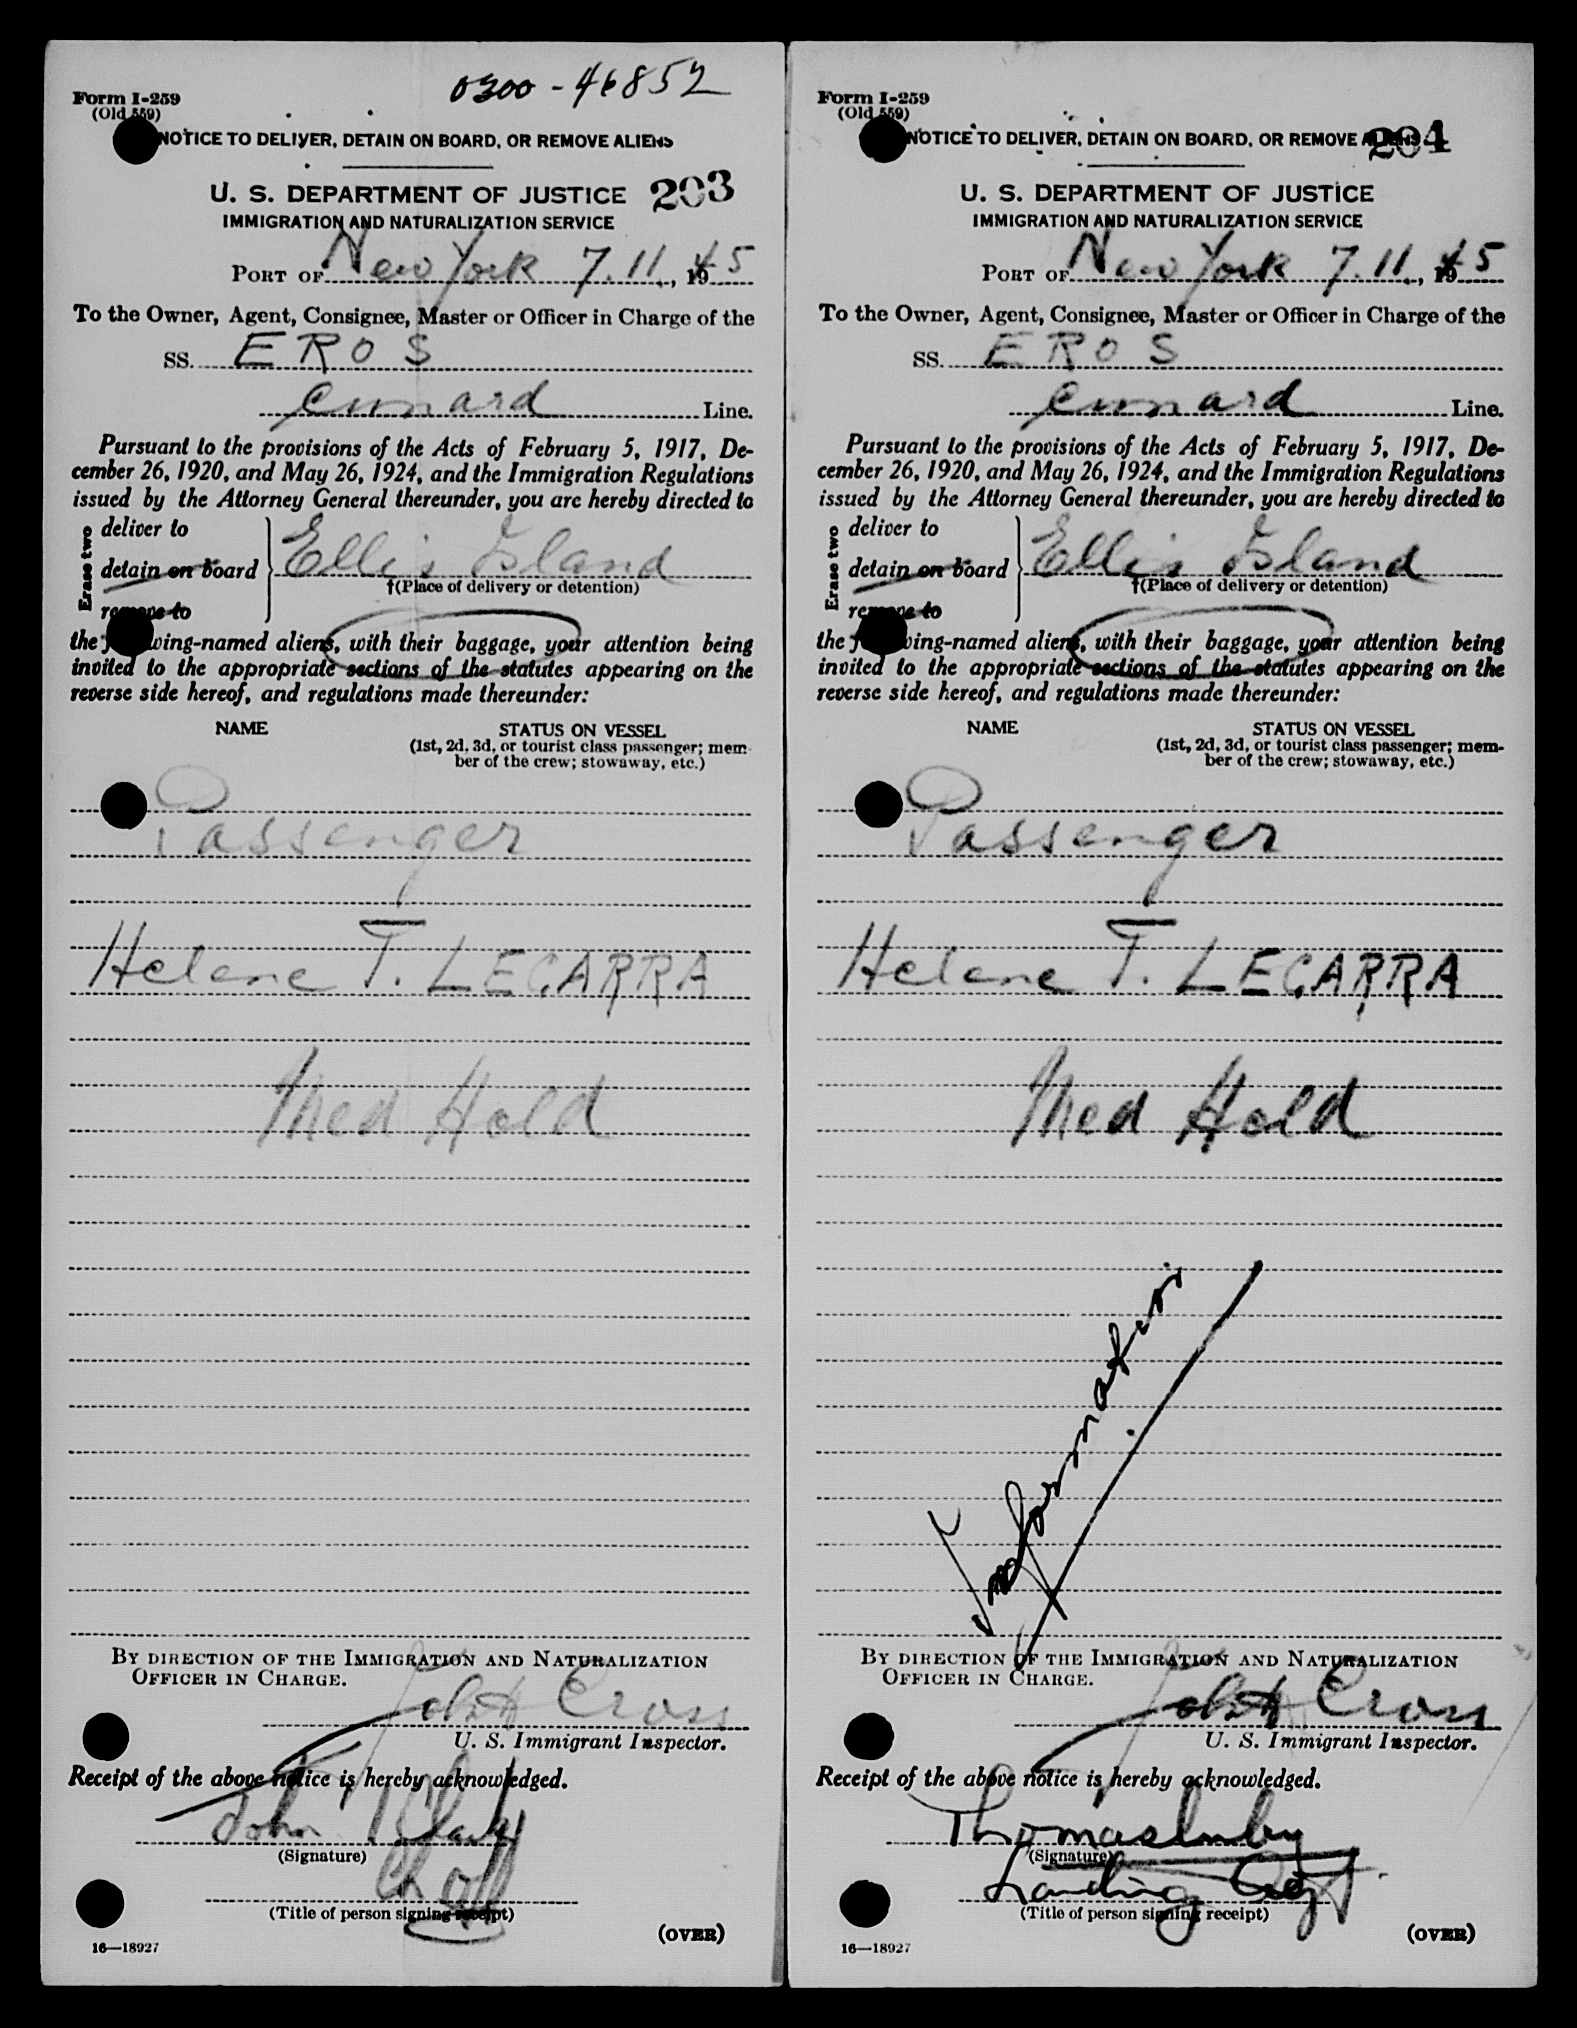 0300-46852
Form I-259
(Old 559)
NOTICE TO DELIVER, DETAIN ON BOARD, OR REMOVE ALIENS
U. S. DEPARTMENT OF JUSTICE 203
IMMIGRATION AND NATURALIZATION SERVICE
PORT OF New York 7.11., 1945
To the Owner, Agent, Consignee, Master or Officer in Charge of the
SS. EROS
Cunard Line.
Pursuant to the provisions of the Acts of February 5, 1917, De-
cember 26, 1920, and May 26, 1924, and the Immigration Regulations
issued by the Attorney General thereunder, you are hereby directed to
Erase two
deliver to
detain on board
remove to
Ellis Island
†(Place of delivery or detention)
the wing-named aliens, with their baggage, your attention being
invited to the appropriate sections of the statutes appearing on the
reverse side hereof, and regulations made thereunder:
NAME STATUS ON VESSEL
(1st, 2d, 3d, or tourist class passenger; mem-
ber of the crew; stowaway, etc.)
Passenger
Helene T. LECARRA
Med Hold
BY DIRECTION OF THE IMMIGRATION AND NATURALIZATION
OFFICER IN CHARGE.
John Cross
U. S. Immigrant Inspector.
Receipt of the above notice is hereby acknowledged.
John
(Signature)
(Title of person signing receipt)
(OVER)
16—18927
Form I-259
(Old 559)
NOTICE TO DELIVER, DETAIN ON BOARD, OR REMOVE ALIENS 204
U. S. DEPARTMENT OF JUSTICE
IMMIGRATION AND NATURALIZATION SERVICE
PORT OF New York 7.11., 1945
To the Owner, Agent, Consignee, Master or Officer in Charge of the
SS. EROS
Cunard Line.
Pursuant to the provisions of the Acts of February 5, 1917, De-
cember 26, 1920, and May 26, 1924, and the Immigration Regulations
issued by the Attorney General thereunder, you are hereby directed to
Erase two
deliver to
detain on board
remove to
Ellis Island
†(Place of delivery or detention)
the wing-named aliens, with their baggage, your attention being
invited to the appropriate sections of the statutes appearing on the
reverse side hereof, and regulations made thereunder:
NAME STATUS ON VESSEL
(1st, 2d, 3d, or tourist class passenger; mem-
ber of the crew; stowaway, etc.)
Passenger
Helene T. LECARRA
Med Hold
Information
BY DIRECTION OF THE IMMIGRATION AND NATURALIZATION
OFFICER IN CHARGE.
John Cross
U. S. Immigrant Inspector.
Receipt of the above notice is hereby acknowledged.
Thomas
(Signature)
Landing Agt.
(Title of person signing receipt)
(OVER)
16—18927